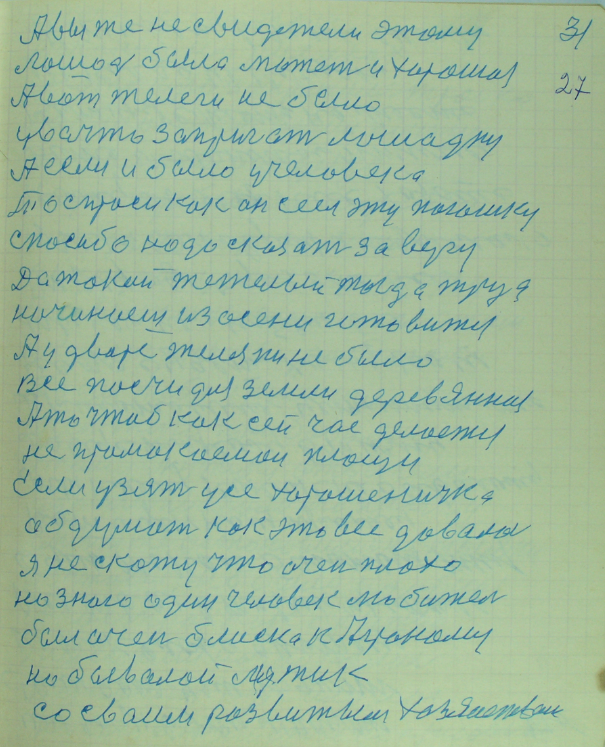 31
Авы же не свидетели этому
лошод была может и хорошая
27
Авот телеги не было
увачть запригат лошадку
А если и было у человека
То спроси как он сеел эту погошку
спосибо нодо сказат за веру
Да токой тежелый тогда труд
ночинаеш из осени готовитя
А у дворе желяпи не было
все посчи дя земли деревянная
Ато чтоб как сей час делоетя
не промокоемои площи
Если узят усе хорошеничка
обдумот как это все довала
я не скожу что очен плохо
но зного один человек любител
был очен блиска к Агроному
но бывалой мужик
со сваим развитым хозяством